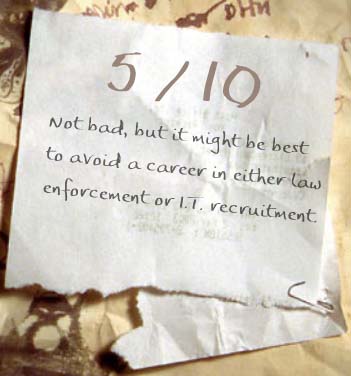 5/10
Not bad, but it might be best
to avoid a career in either law
enforcement or I.T. recruitment.